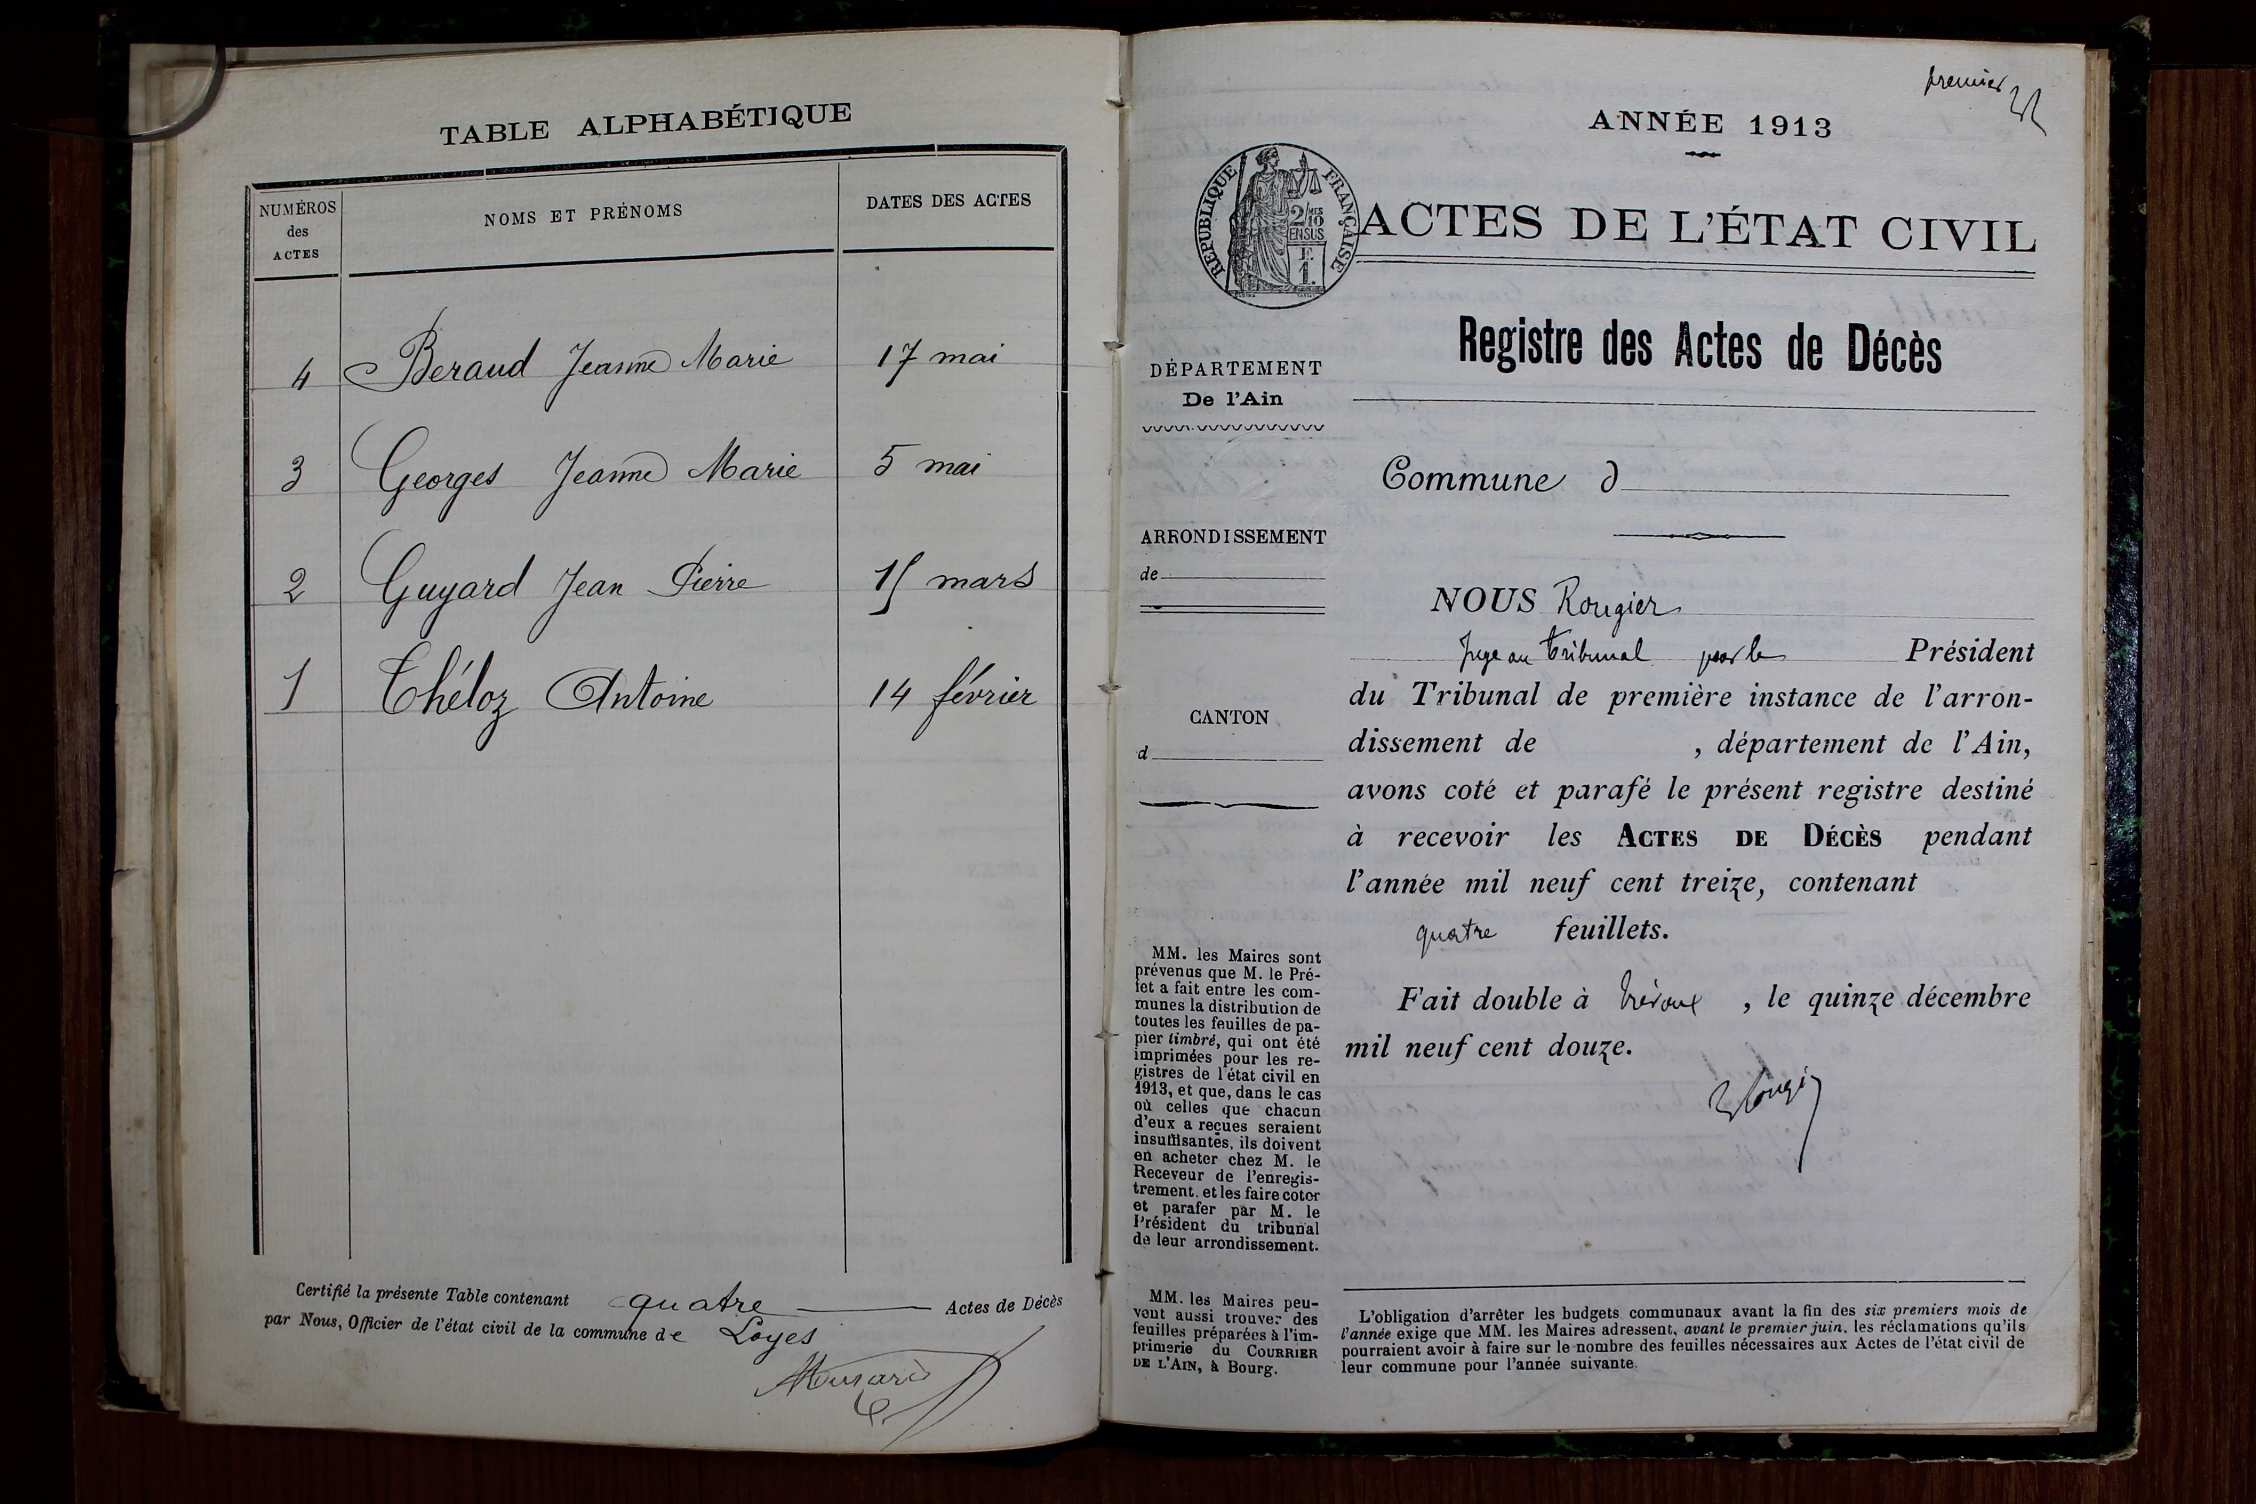 TABLE ALPHABÉTIQUE
NUMÉROS
des
ACTES
NOMS ET PRÉNOMS
DATES DES ACTES
4 Beraud Jeanne Marie 17 mai
3 Georges Jeanne Marie 5 mai
2 Guyard Jean Pierre 15 mars
1 Théloz Antoine 14 février
Certifié la présente Table contenant quatre Actes de Décès
par Nous, Officier de l'état civil de la commune de Loyes
premier
ANNÉE 1913
RÉPUBLIQUE FRANÇAISE
2/10 MES
EN SUS
F.
1.
ACTES DE L'ÉTAT CIVIL
Registre des Actes de Décès
DÉPARTEMENT
De l'Ain
Commune d
ARRONDISSEMENT
de
CANTON
d
NOUS Rougier
Juge au tribunal pour le Président
du Tribunal de première instance de l'arron-
dissement de , département de l'Ain,
avons coté et parafé le présent registre destiné
à recevoir les ACTES DE DÉCÈS pendant
l'année mil neuf cent treize, contenant
quatre feuillets.
Fait double à Trévoux , le quinze décembre
mil neuf cent douze.
Rougier
MM. les Maires sont
prévenus que M. le Pré-
fet a fait entre les com-
munes la distribution de
toutes les feuilles de pa-
pier timbré, qui ont été
imprimées pour les re-
gistres de l'état civil en
1913, et que, dans le cas
où celles que chacun
d'eux a reçues seraient
insuffisantes, ils doivent
en acheter chez M. le
Receveur de l'enregis-
trement, et les faire coter
et parafer par M. le
Président du tribunal
de leur arrondissement.
MM. les Maires peu-
vent aussi trouver des
feuilles préparées à l'im-
primerie du COURRIER
DE L'AIN, à Bourg.
L'obligation d'arrêter les budgets communaux avant la fin des six premiers mois de
l'année exige que MM. les Maires adressent, avant le premier juin, les réclamations qu'ils
pourraient avoir à faire sur le nombre des feuilles nécessaires aux Actes de l'état civil de
leur commune pour l'année suivante.